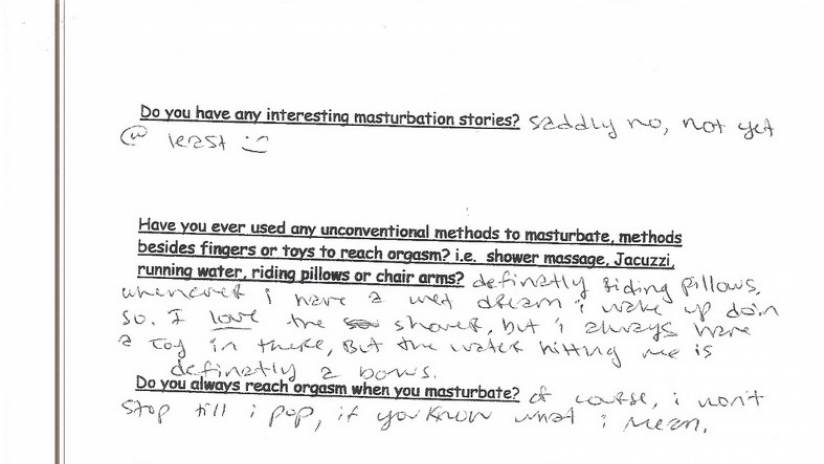 Do you have any interesting masturbation stories? saddly no, not yet
@ least :)
Have you ever used any unconventional methods to masturbate, methods
besides fingers or toys to reach orgasm? i.e. shower massage, Jacuzzi,
running water, riding pillows or chair arms? definatly riding pillows,
whenever i have a wet dream i wake up doin
so. I love the shower, but i always have
a toy in there, But the water hitting me is
definatly a bonus.
Do you always reach orgasm when you masturbate? of course, i won't
stop till i pop, if you know what i mean.